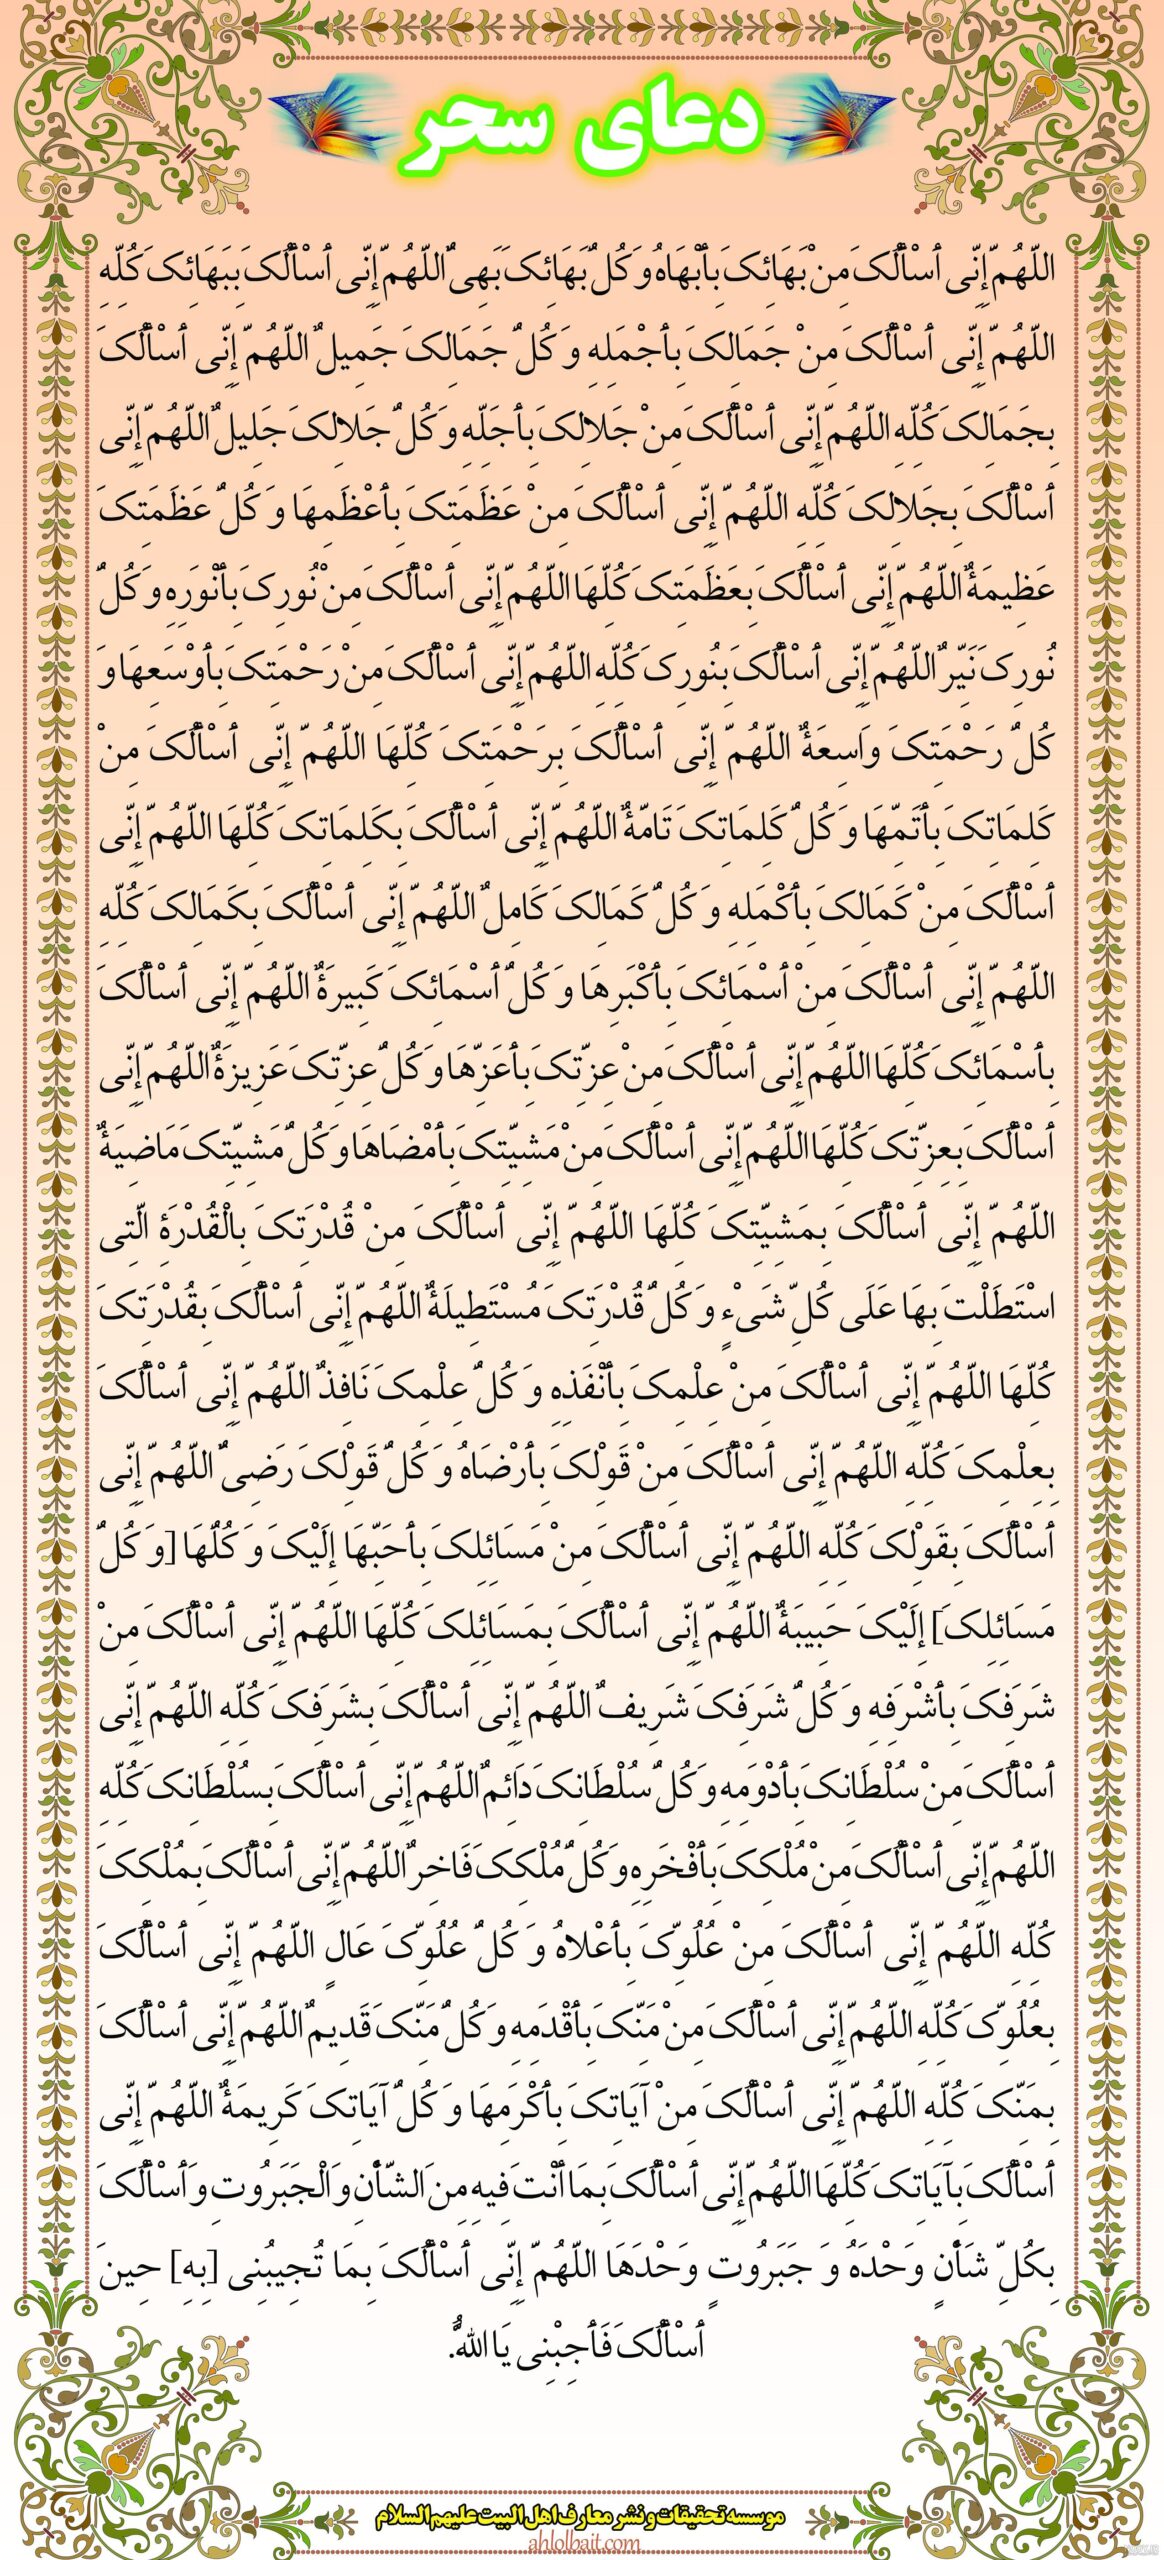 دعای سحر
اللّهُمّ إِنّی أسْألُکَ مِنْ بَهَائِکَ بِأبْهَاهُ وَ کُلّ بَهَائِکَ بَهِیّ اللّهُمّ إِنّی أسْألُکَ بِبَهَائِکَ کُلّهِ
اللّهُمّ إِنّی أسْألُکَ مِنْ جَمَالِکَ بِأجْمَلِهِ وَ کُلّ جَمَالِکَ جَمِیلٌ اللّهُمّ إِنّی أسْألُکَ
بِجَمَالِکَ کُلّهِ اللّهُمّ إِنّی أسْألُکَ مِنْ جَلالِکَ بِأجَلّهِ وَ کُلّ جَلالِکَ جَلِیلٌ اللّهُمّ إِنّی
أسْألُکَ بِجَلالِکَ کُلّهِ اللّهُمّ إِنّی أسْألُکَ مِنْ عَظَمَتِکَ بِأعْظَمِهَا وَ کُلّ عَظَمَتِکَ
عَظِیمَةٌ اللّهُمّ إِنّی أسْألُکَ بِعَظَمَتِکَ کُلّهَا اللّهُمّ إِنّی أسْألُکَ مِنْ نُورِکَ بِأنْوَرِهِ وَ کُلّ
نُورِکَ نَیّرٌ اللّهُمّ إِنّی أسْألُکَ بِنُورِکَ کُلّهِ اللّهُمّ إِنّی أسْألُکَ مِنْ رَحْمَتِکَ بِأوْسَعِهَا وَ
کُلّ رَحْمَتِکَ وَاسِعَةٌ اللّهُمّ إِنّی أسْألُکَ بِرَحْمَتِکَ کُلّهَا اللّهُمّ إِنّی أسْألُکَ مِنْ
کَلِمَاتِکَ بِأتَمّهَا وَ کُلّ کَلِمَاتِکَ تَامّةٌ اللّهُمّ إِنّی أسْألُکَ بِکَلِمَاتِکَ کُلّهَا اللّهُمّ إِنّی
أسْألُکَ مِنْ کَمَالِکَ بِأکْمَلِهِ وَ کُلّ کَمَالِکَ کَامِلٌ اللّهُمّ إِنّی أسْألُکَ بِکَمَالِکَ کُلّهِ
اللّهُمّ إِنّی أسْألُکَ مِنْ أسْمَائِکَ بِأکْبَرِهَا وَ کُلّ أسْمَائِکَ کَبِیرَةٌ اللّهُمّ إِنّی أسْألُکَ
بِأسْمَائِکَ کُلّهَا اللّهُمّ إِنّی أسْألُکَ مِنْ عِزّتِکَ بِأعَزّهَا وَ کُلّ عِزّتِکَ عَزِیزَةٌ اللّهُمّ إِنّی
أسْألُکَ بِعِزّتِکَ کُلّهَا اللّهُمّ إِنّی أسْألُکَ مِنْ مَشِیّتِکَ بِأمْضَاهَا وَ کُلّ مَشِیّتِکَ مَاضِیَةٌ
اللّهُمّ إِنّی أسْألُکَ بِمَشِیّتِکَ کُلّهَا اللّهُمّ إِنّی أسْألُکَ مِنْ قُدْرَتِکَ بِالْقُدْرَةِ الّتِی
اسْتَطَلْتَ بِهَا عَلَی کُلِّ شَیْءٍ وَ کُلّ قُدْرَتِکَ مُسْتَطِیلَةٌ اللّهُمّ إِنّی أسْألُکَ بِقُدْرَتِکَ
کُلّهَا اللّهُمّ إِنّی أسْألُکَ مِنْ عِلْمِکَ بِأنْفَذِهِ وَ کُلّ عِلْمِکَ نَافِذٌ اللّهُمّ إِنّی أسْألُکَ
بِعِلْمِکَ کُلّهِ اللّهُمّ إِنّی أسْألُکَ مِنْ قَوْلِکَ بِأرْضَاهُ وَ کُلّ قَوْلِکَ رَضِیّ اللّهُمّ إِنّی
أسْألُکَ بِقَوْلِکَ کُلّهِ اللّهُمّ إِنّی أسْألُکَ مِنْ مَسَائِلِکَ بِأحَبّهَا إِلَیْکَ وَ کُلّهَا [وَ کُلّ
مَسَائِلِکَ] إِلَیْکَ حَبِیبَةٌ اللّهُمّ إِنّی أسْألُکَ بِمَسَائِلِکَ کُلّهَا اللّهُمّ إِنّی أسْألُکَ مِنْ
شَرَفِکَ بِأشْرَفِهِ وَ کُلّ شَرَفِکَ شَرِیفٌ اللّهُمّ إِنّی أسْألُکَ بِشَرَفِکَ کُلّهِ اللّهُمّ إِنّی
أسْألُکَ مِنْ سُلْطَانِکَ بِأدْوَمِهِ وَ کُلّ سُلْطَانِکَ دَائِمٌ اللّهُمّ إِنّی أسْألُکَ بِسُلْطَانِکَ کُلّهِ
اللّهُمّ إِنّی أسْألُکَ مِنْ مُلْکِکَ بِأفْخَرِهِ وَ کُلّ مُلْکِکَ فَاخِرٌ اللّهُمّ إِنّی أسْألُکَ بِمُلْکِکَ
کُلّهِ اللّهُمّ إِنّی أسْألُکَ مِنْ عُلُوّکَ بِأعْلاهُ وَ کُلّ عُلُوّکَ عَالٍ اللّهُمّ إِنّی أسْألُکَ
بِعُلُوّکَ کُلّهِ اللّهُمّ إِنّی أسْألُکَ مِنْ مَنّکَ بِأقْدَمِهِ وَ کُلّ مَنّکَ قَدِیمٌ اللّهُمّ إِنّی أسْألُکَ
بِمَنّکَ کُلّهِ اللّهُمّ إِنّی أسْألُکَ مِنْ آیَاتِکَ بِأکْرَمِهَا وَ کُلّ آیَاتِکَ کَرِیمَةٌ اللّهُمّ إِنّی
أسْألُکَ بِآیَاتِکَ کُلّهَا اللّهُمّ إِنّی أسْألُکَ بِمَا أنْتَ فِیهِ مِنَ الشّأْنِ وَ الْجَبَرُوتِ وَ أسْألُکَ
بِکُلِّ شَأْنٍ وَحْدَهُ وَ جَبَرُوتٍ وَحْدَهَا اللّهُمّ إِنّی أسْألُکَ بِمَا تُجِیبُنِی [بِهِ] حِینَ
أسْألُکَ فَأجِبْنِی یَا اللّهُ.
موسسه تحقیقات و نشر معارف اهل البیت علیهم السلام
ahlolbait.com